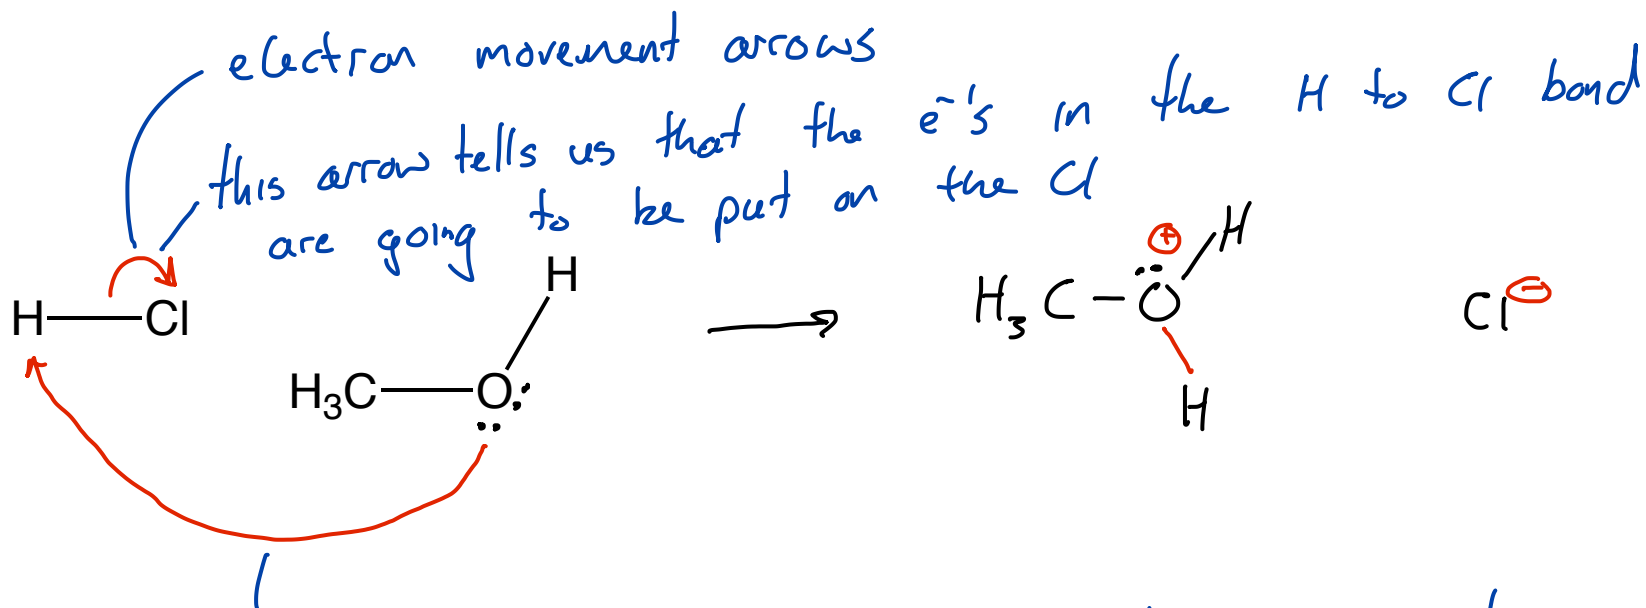 electron movement arrows
this arrow tells us that the e⁻'s in the H to Cl bond
are going to be put on the Cl
H
H
⊕
H—Cl
H₃C—O
Cl⊖
H₃C—O
H